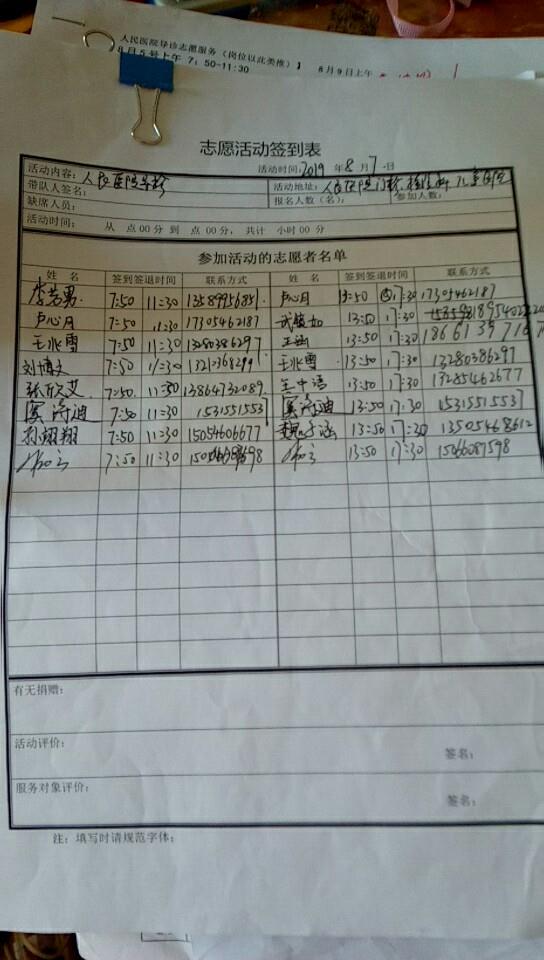 人民医院导诊志愿服务（岗位以此类推）】
8月5号上午 7：50-11:30 8月9日上午
志愿活动签到表
活动内容：人民医院导诊 活动时间：2019 年 8 月 7 日
带队人签名： 活动地址：人民医院门诊
缺席人员： 报名人数（名）： 参加人数：
活动时间： 从 点00分 到 点00分， 共计 小时00分
参加活动的志愿者名单
姓 名 签到签退时间 联系方式 姓 名 签到签退时间 联系方式
7:50 11:30 卢心月 13:50 17:30 17305462187
卢心月 7:50 11:30 17305462187 13:50 17:30
王兆雪 7:50 11:30 13280386297 王涵 13:50 17:30
刘博文 7:50 11:30 王兆雪 13:50 17:30 13280386297
张欣艾 7:50 11:30 13864732089 王中洁 13:50 17:30 13285462677
诗迪 7:50 11:30 15315515537 诗迪 13:50 17:30 15315515537
孙翊翔 7:50 11:30 15054606677 魏子涵 13:50 17:30 13505468612
7:50 11:30 13:50 17:30 15066087598
有无捐赠：
活动评价：
签名：
服务对象评价：
签名：
注：填写时请规范字体；